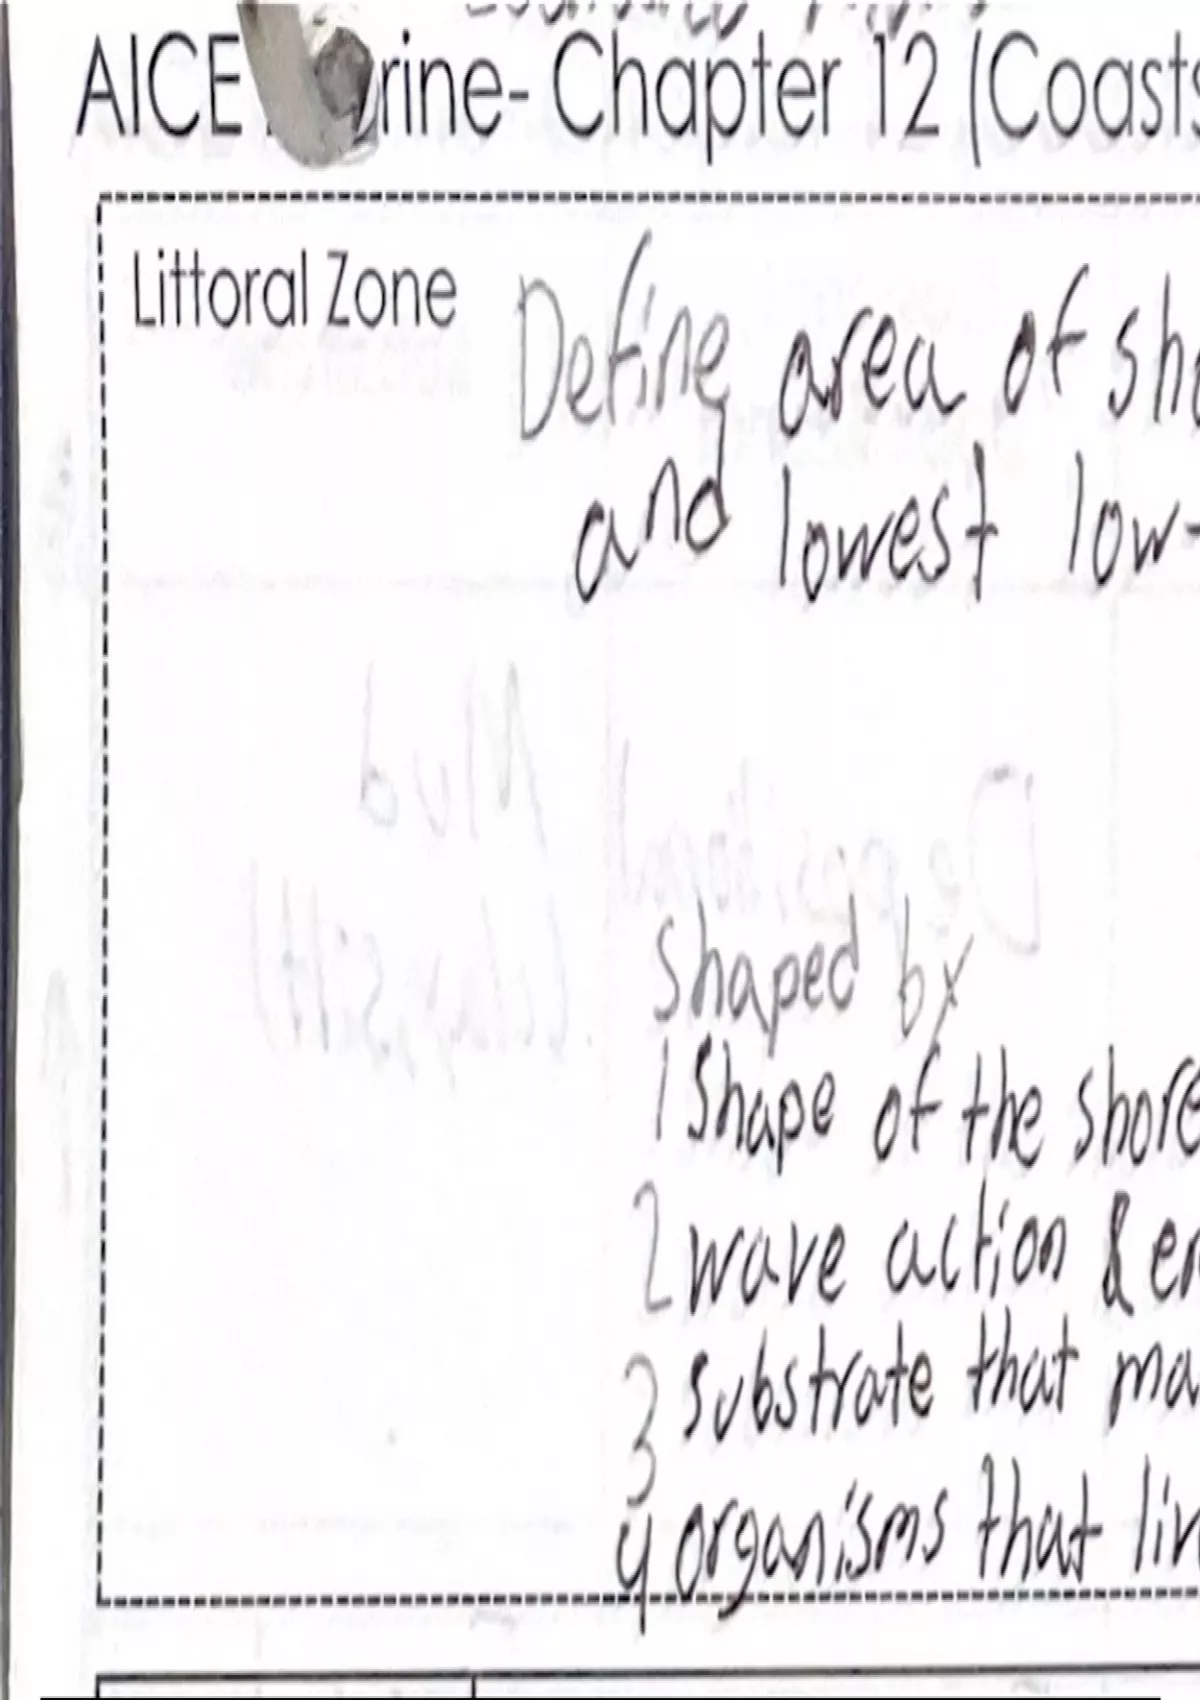 AICE rine- Chapter 12 (Coasts
Littoral Zone
Define area of sho
and lowest low-
shaped by
1 shape of the shore
2 wave action & er
3 substrate that ma
4 organisms that liv